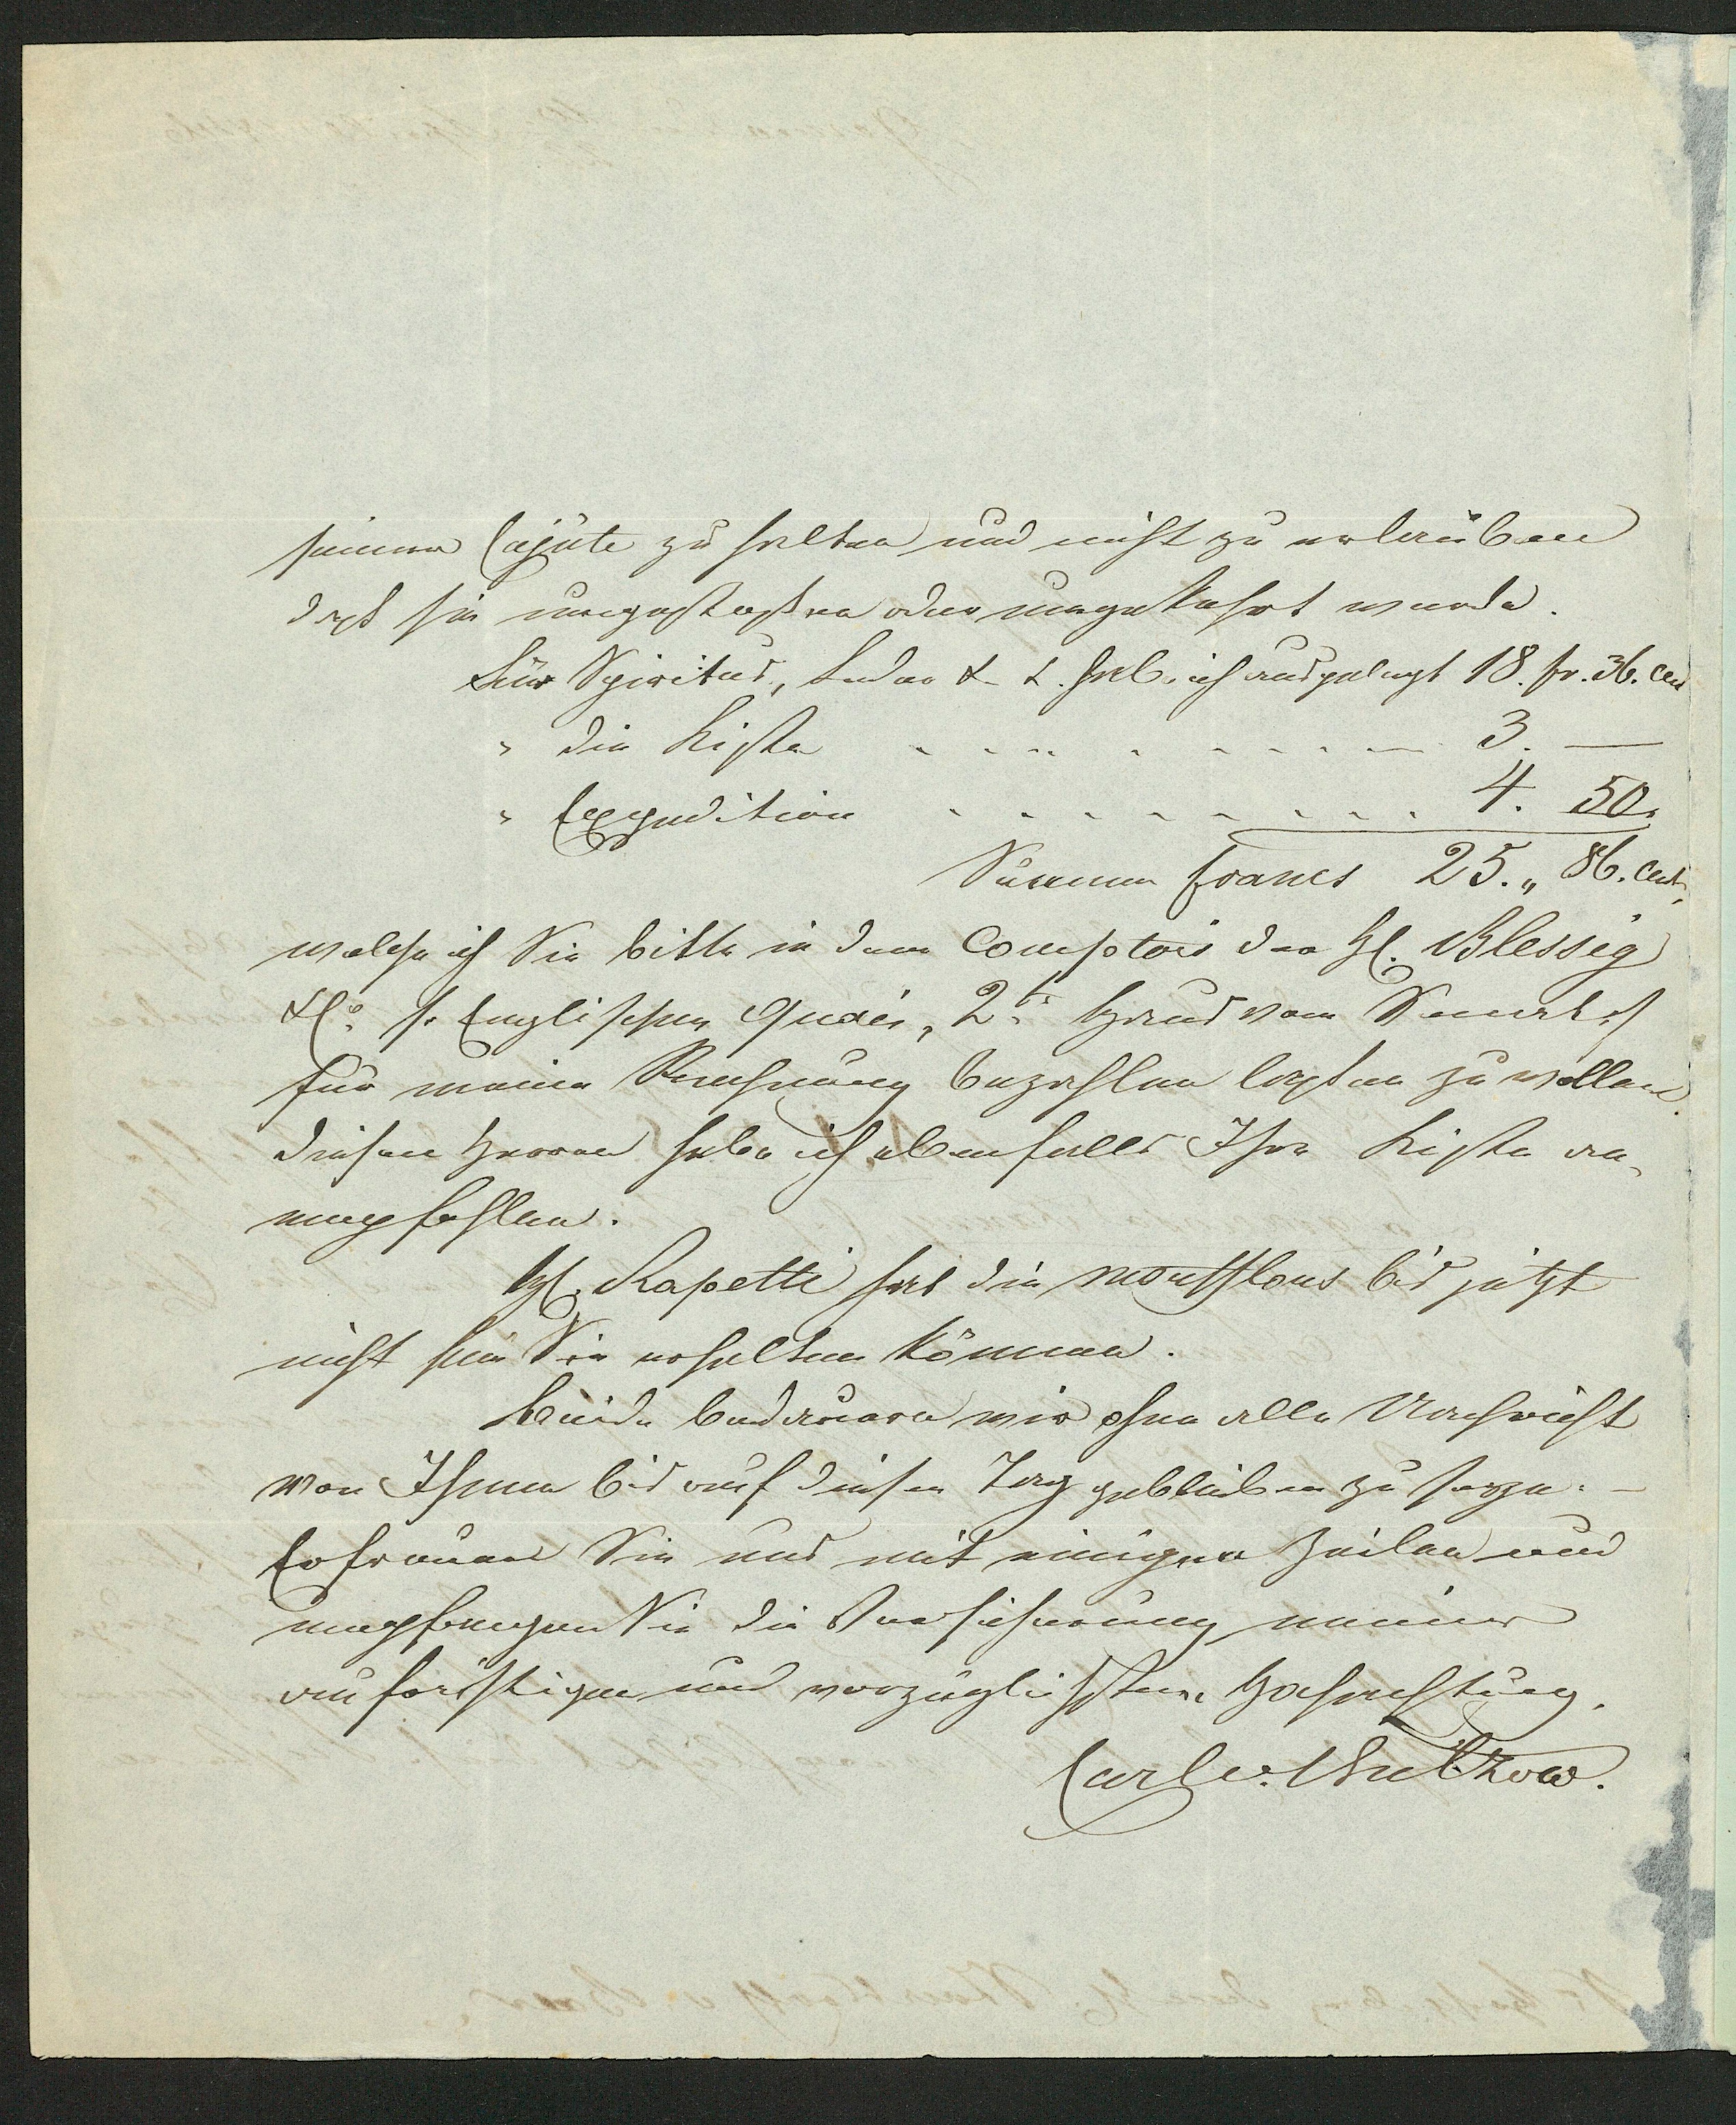 seiner Cajüte zu halten und nicht zu erlauben
daß sie umgestoßen oder umgekehrt werde.
Für Spiritus, Leder & &. hab ich ausgelegt 18. fr. 36. cen
" die Kiste . . . . . . . . . 3. —
" Expedition . . . . . . . . . 4. 50.
Summa francs 25. „ 86. cent.
welche ich Sie bitte in dem Comptoir der H. Blessig
& Co. Englischen Quai, 2te Haus vom Senat
für meine Rechnung bezahlen laßen zu wollen.
diesen Herren habe ich ebenfalls Ihre Kiste an-
empfohlen.
H. Rapetti hat die moufflons bis jetzt
nicht für Sie erhalten können.
Beide bedauern wir ohne alle Nachricht
von Ihnen bis auf diesen Tag geblieben zu seyn. —
Erfreuen Sie uns mit einigen Zeilen und
empfangen Sie die Versicherung meiner
aufrichtigen und vorzüglichsten Hochachtung.
Carl v.